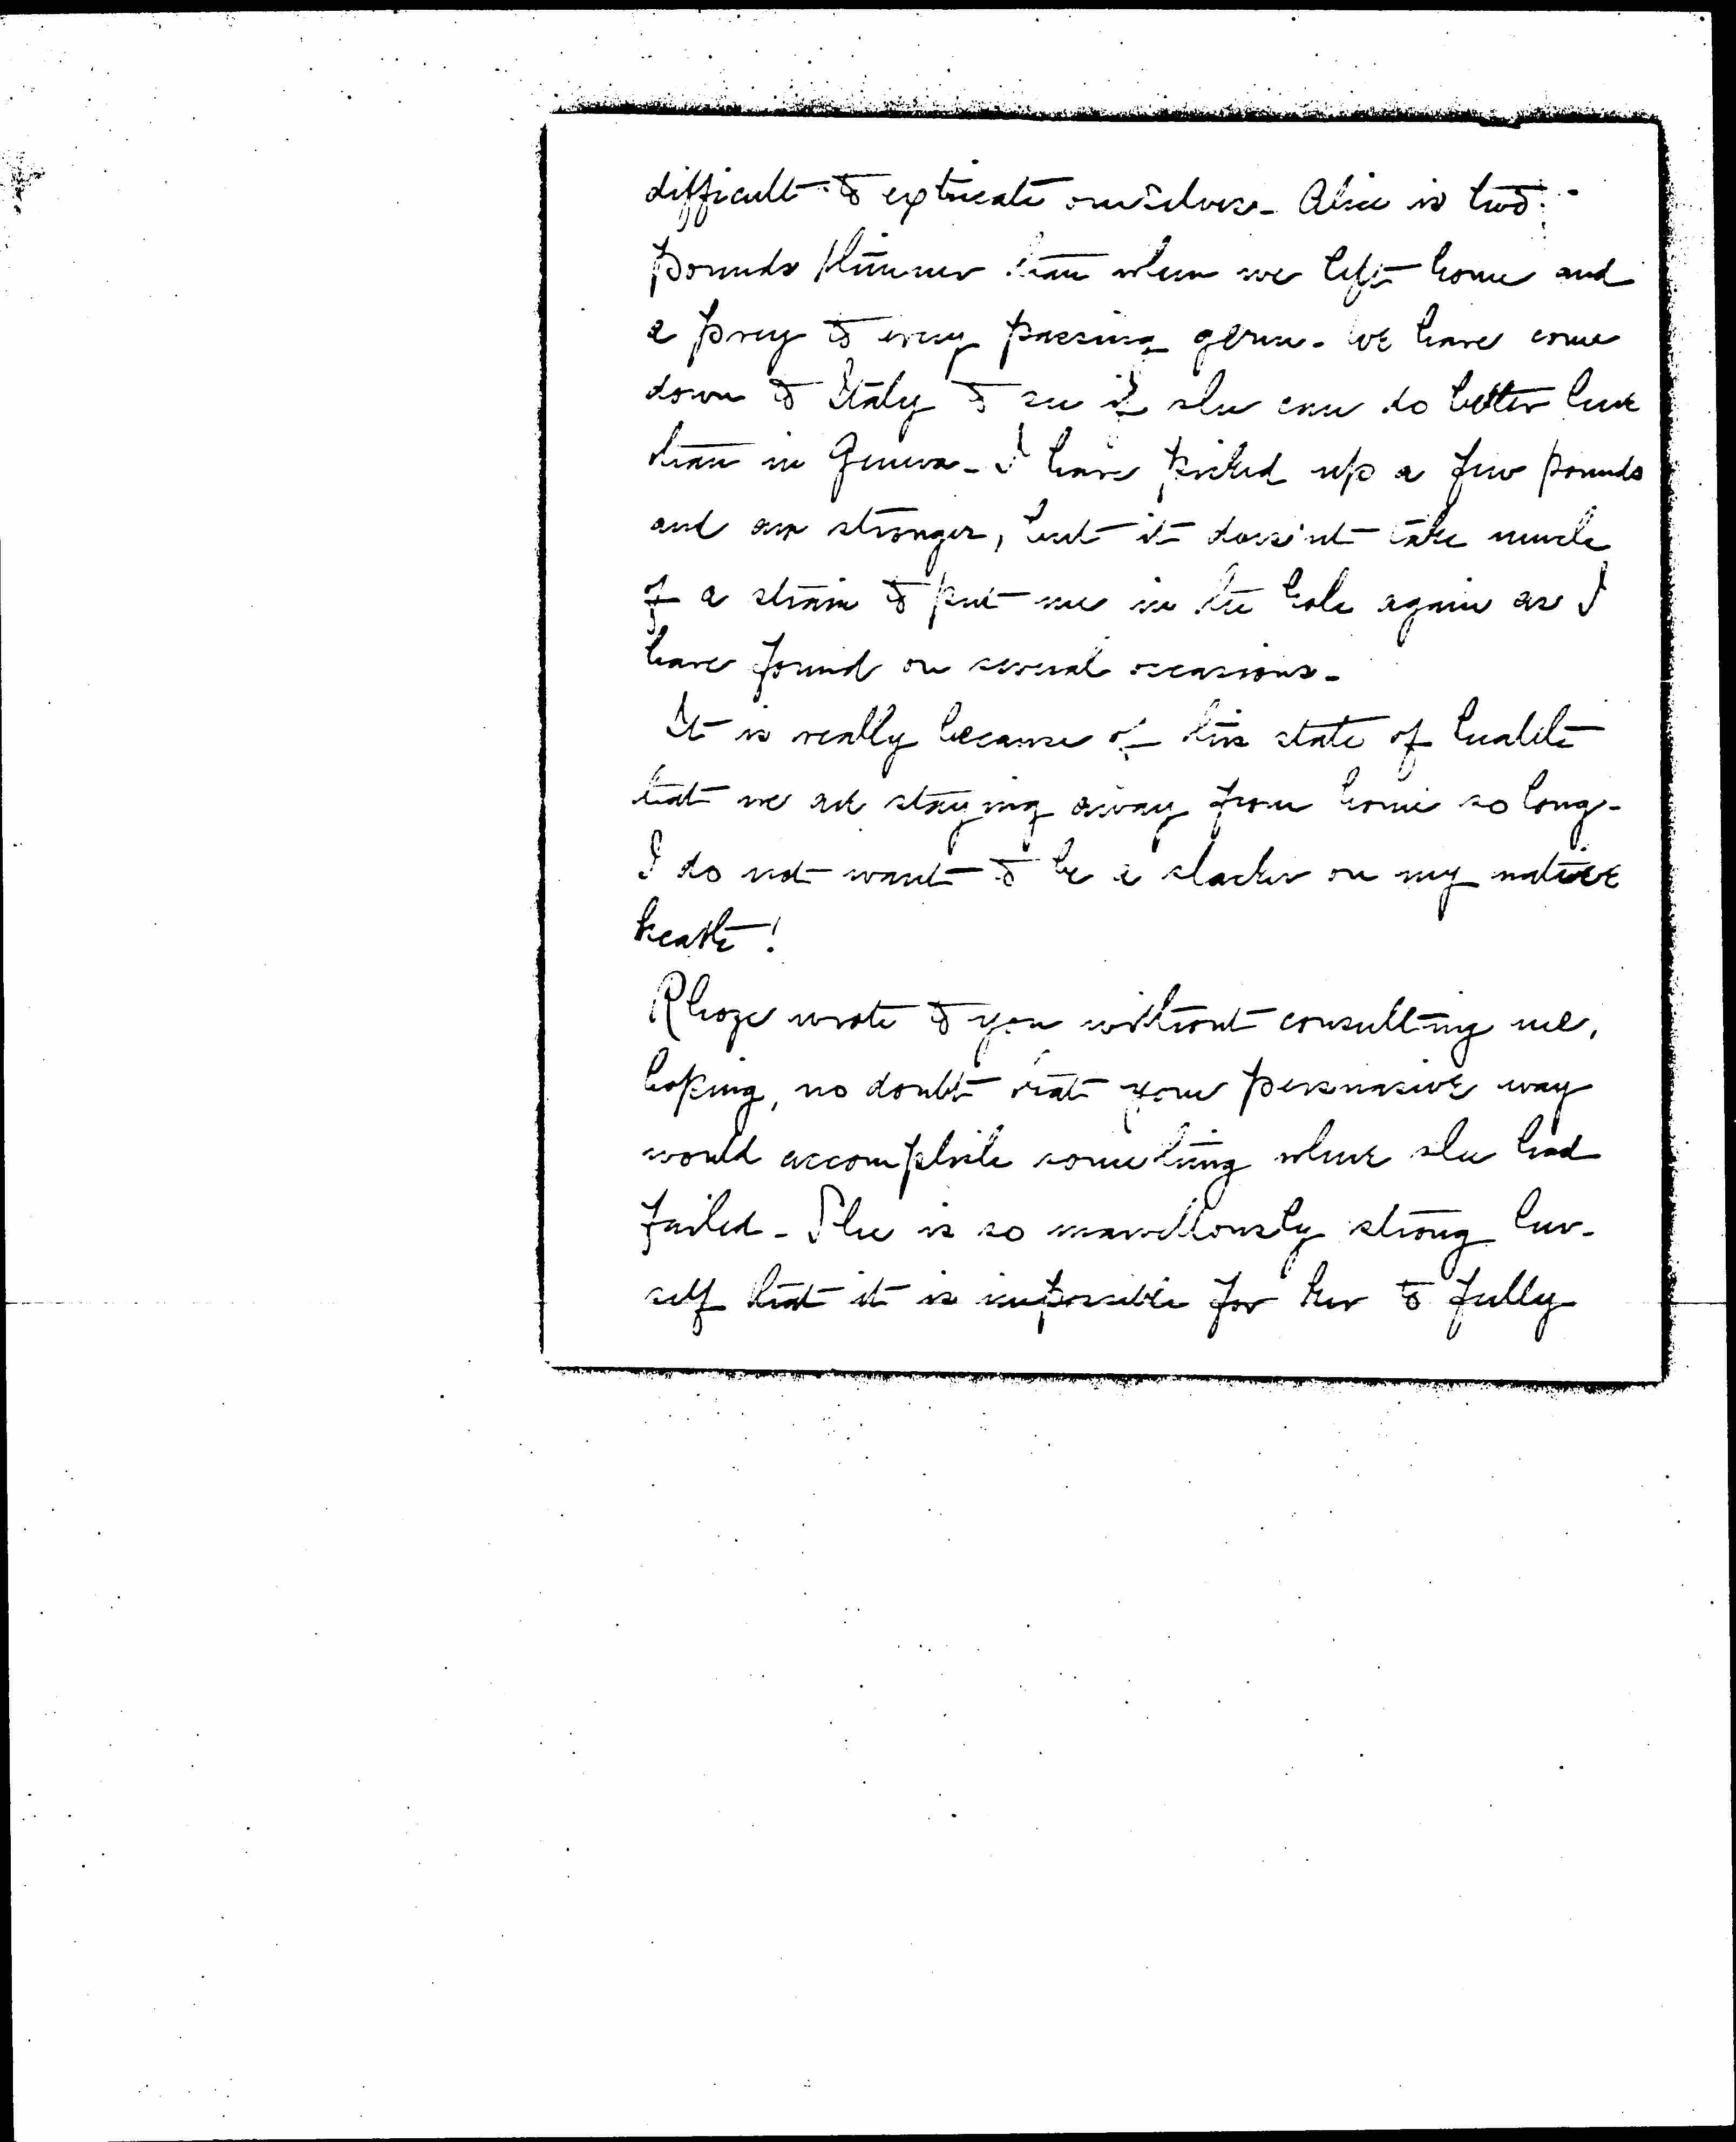 difficult to extricate ourselves - Alice is two
pounds thinner than when we left home and
a prey to every passing germ - We have come
down to Italy to see if she can do better here
than in Geneva - I have picked up a few pounds
and am stronger, but it doesn't take much
of a strain to put me in the hole again as I
have found on several occasions -
It is really because of this state of health
that we are staying away from home so long -
I do not want to be a slacker on my native
heath!
wrote to you without consulting me,
hoping, no doubt that your persuasive way
would accomplish something where she had
failed - She is so marvellously strong her-
self that it is impossible for her to fully